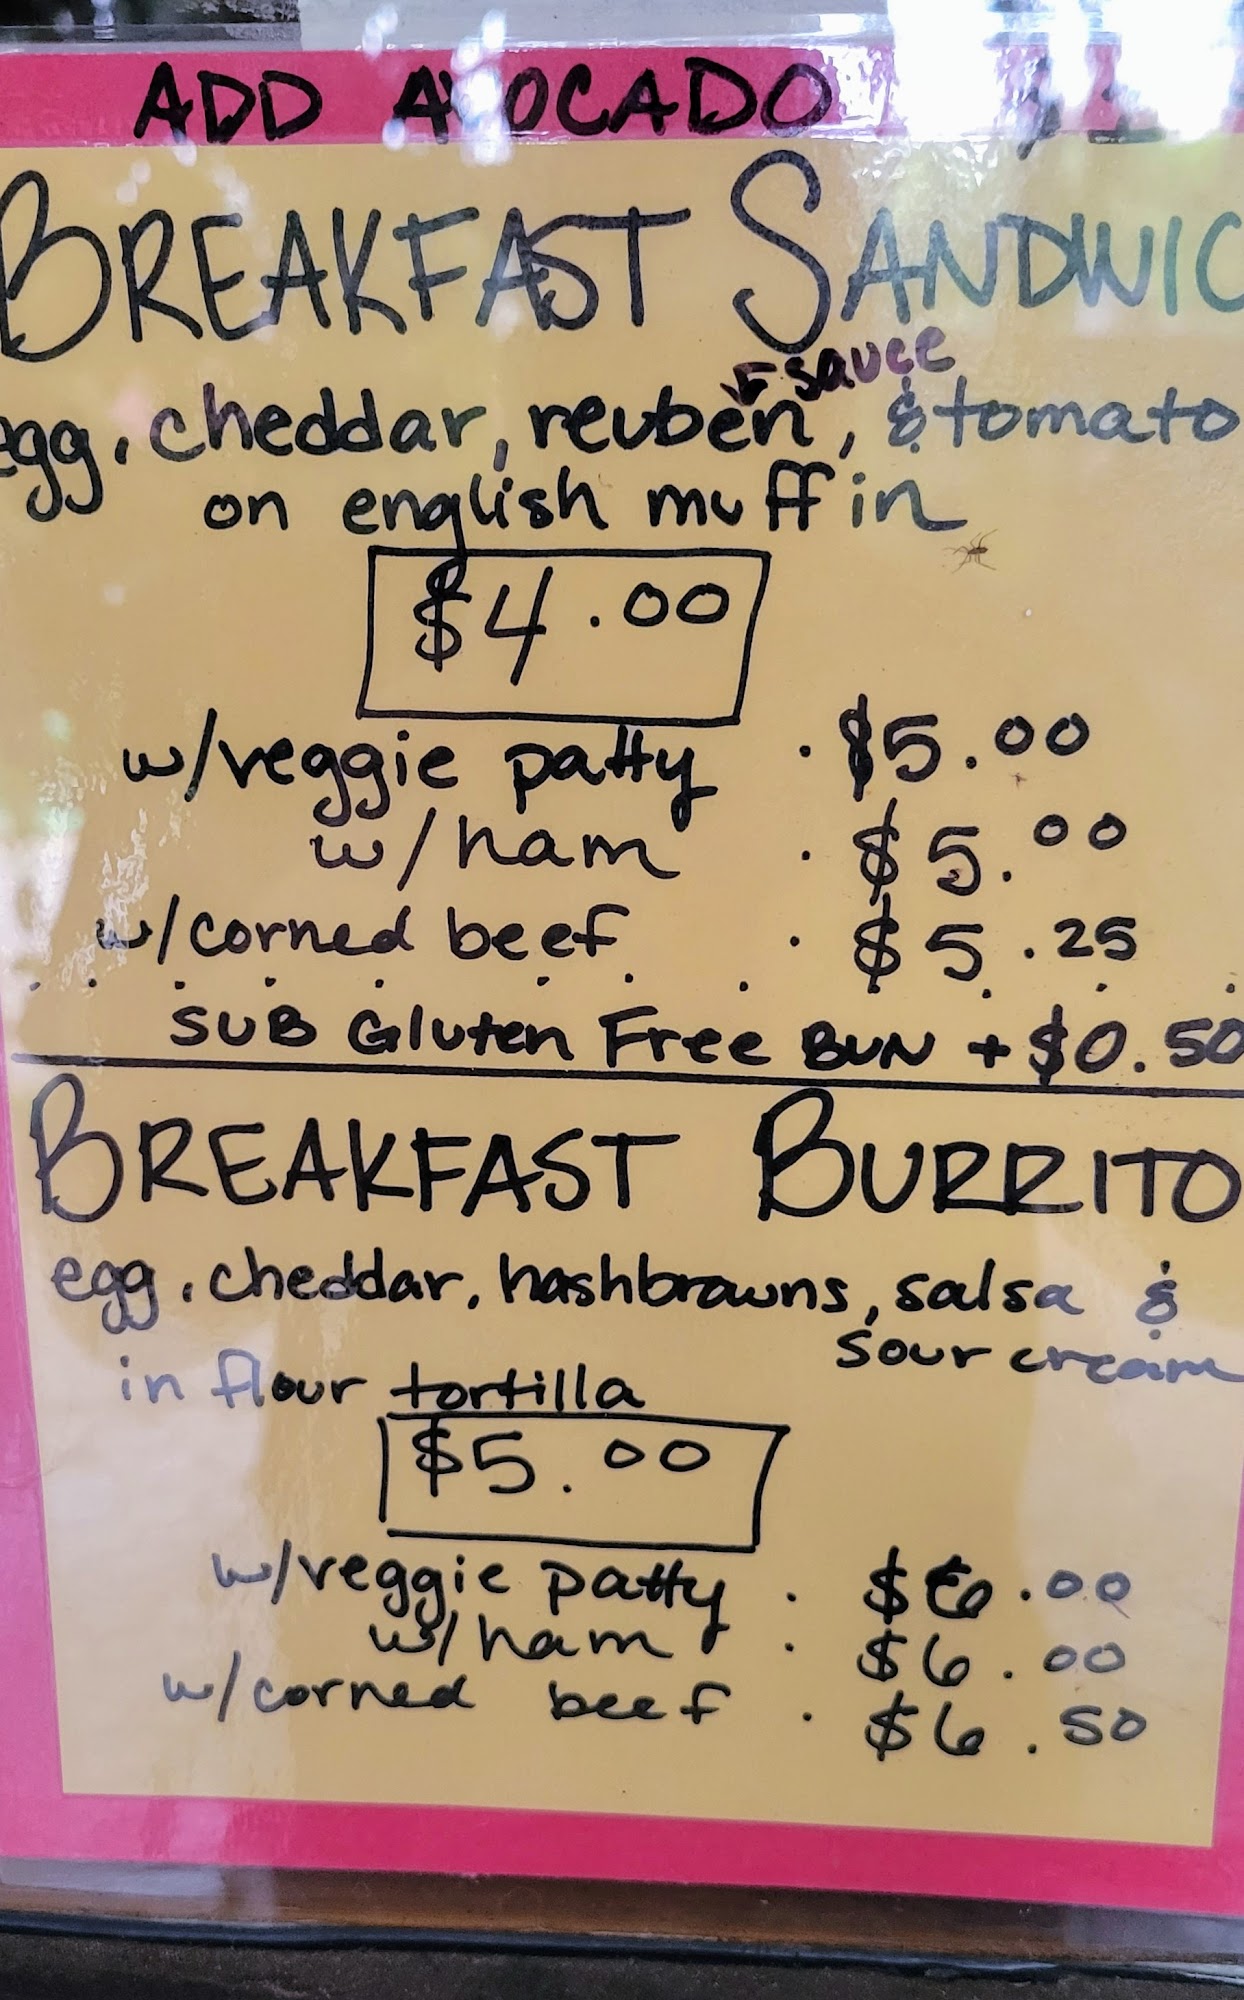 ADD AVOCADO
BREAKFAST SANDWIC
sauce
egg, cheddar, reuben, & tomato
on english muffin
$4.00
w/veggie patty . $5.00
w/ham . $5.00
w/corned beef . $5.25
SUB Gluten Free BUN + $0.50
BREAKFAST BURRITO
egg, cheddar, hashbrowns, salsa &
sour cream
in flour tortilla
$5.00
w/veggie patty . $6.00
w/ham . $6.00
w/corned beef . $6.50